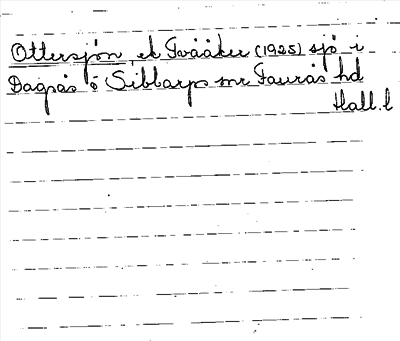 Ottersjön ek Tvååker (1925) sjö i
Dagsås o Sibbarps snr Faurås hd
Hall. l